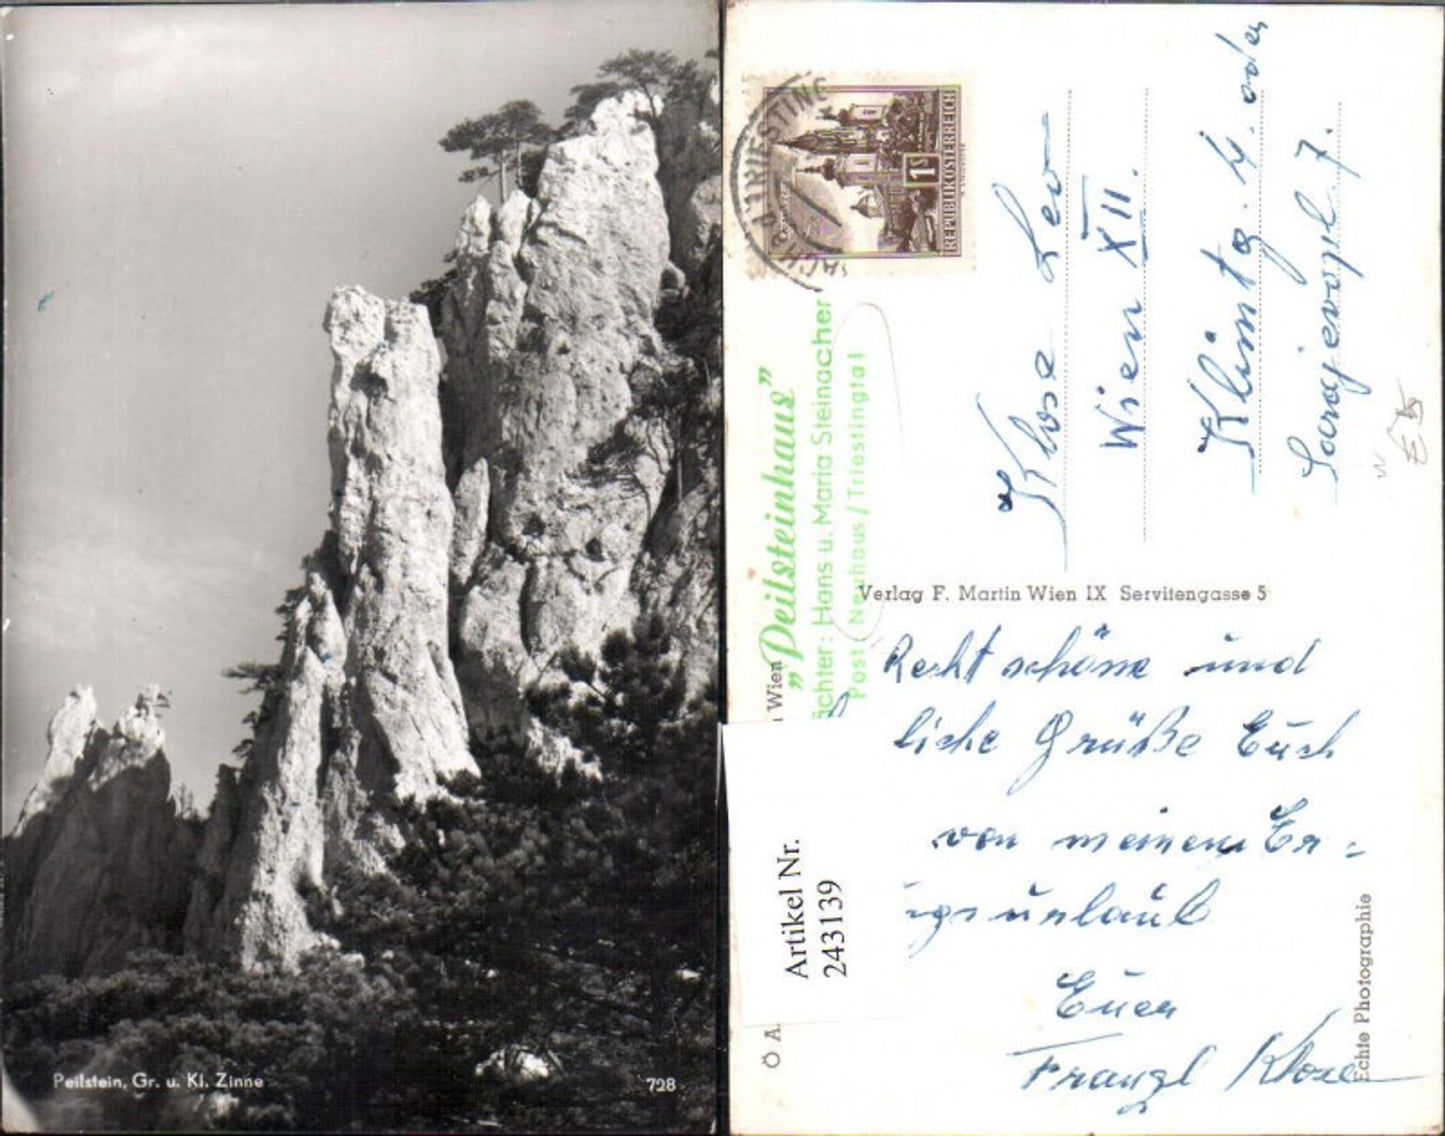 Peilstein, Gr. u. Kl. Zinne
728
REPUBLIK ÖSTERREICH
1S
„Peilsteinhaus”
ächter: Hans u. Maria Steinacher
Post: Neuhaus/Triestingtal
Klose Leo
Wien XII.
Klimtg. 4. oder
Sarajevopl. 7.
Verlag F. Martin Wien IX Servitengasse 5
Recht schöne und
liche Grüße Euch
von meinem Er-
urlaub
Euer
Franzl Klose
Wien
Ö A.
Artikel Nr.
243139
Echte Photographie